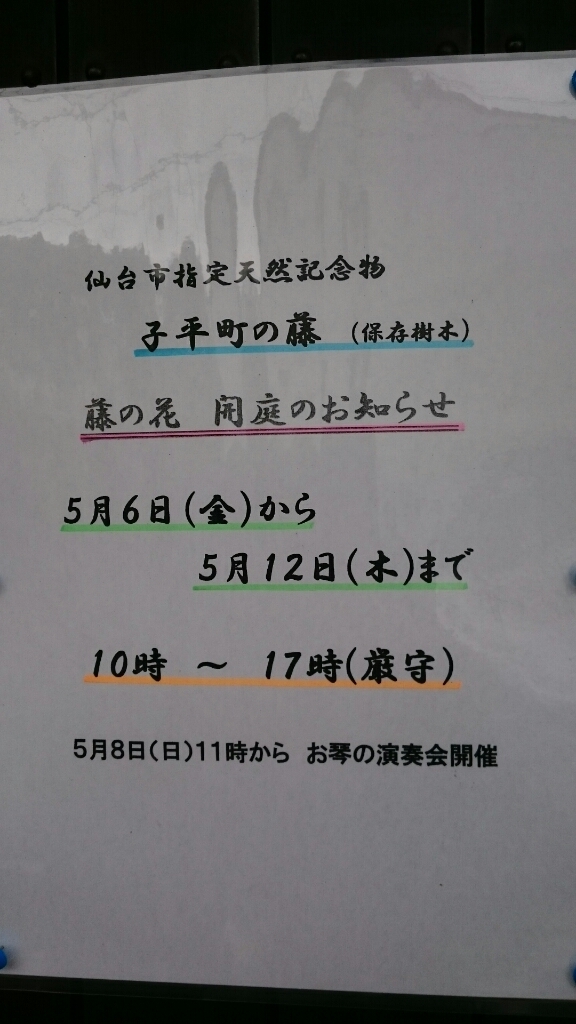 仙台市指定天然記念物
子平町の藤 (保存樹木)
藤の花 開庭のお知らせ
5月6日(金)から
5月12日(木)まで
10時 ～ 17時(厳守)
5月8日(日)11時から お琴の演奏会開催